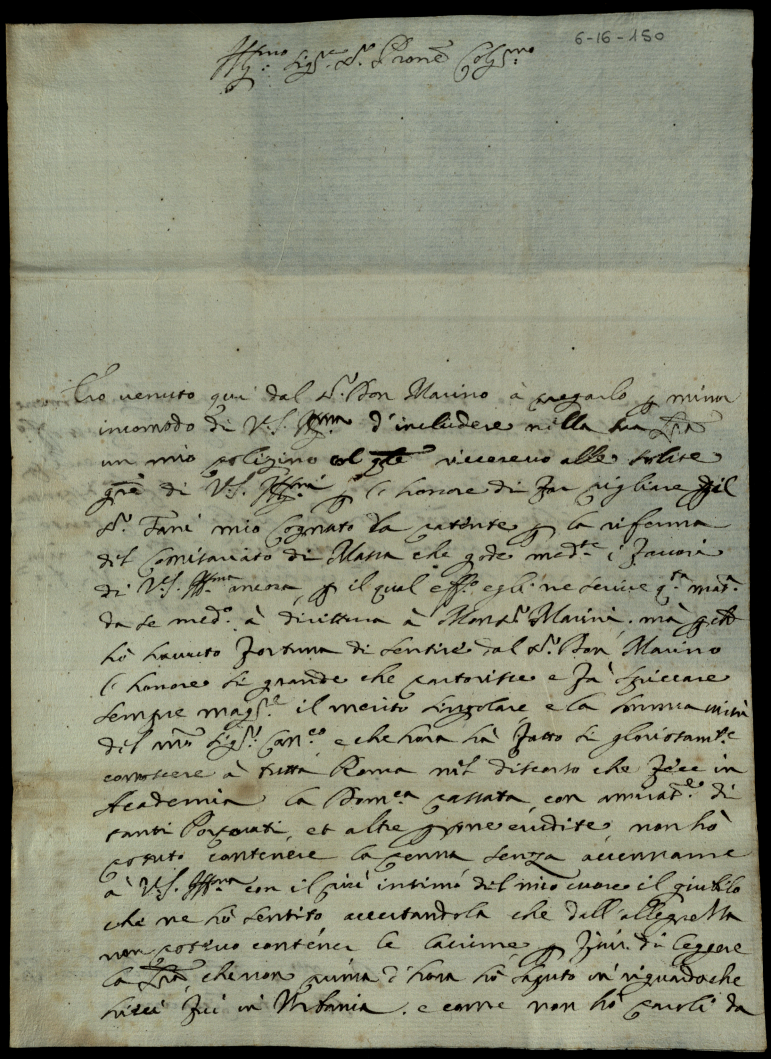 6-16-150
Ill.mo Sig.re Sr. Prone Col.mo
Ero venuto qui dal Sr. Don Marino à pregarlo p minor
incomodo di V.S. Ill.ma d'includere nella sua Lra
un mio polizino col qle ricorrevo alle solite
gre di V.S. Ill.ma p l'honore di far pigliare dil
Sr. Fani mio Cognato la patente p la riferma
del Comisariato di Massa che gode med.te i favori
di V.S. Ill.ma ancora, p il qual eff.o egli ne scrive q.ta mat.a
da se med.o à dirittura à Mons.r Marini. mà p
hò havuto fortuna di sentire dal Sr. Don Marino
l'honore si grande che partorisce e fà spiccare
sempre mag.re il merito singolare e la somma virtù
del mio Sig.r Can.co e che hora hà fatto si gloriosam.te
conoscere à tutta Roma nel discorso che fece in
Academia la Dom.ca passata, con amirat.e di
tanti Porporati, et altre psone erudite, non hò
potuto contenere la penna senza accennarne
à V.S. Ill.ma con il più intimo del mio cuore il giubilo
che ne hò sentito accertandola che dall'allegrezza
non potevo contener le lacrime p finir di leggere
la Lra, che non prima d'hora hò saputo in riguardo che
fui in Urbania. e come non hò parole da